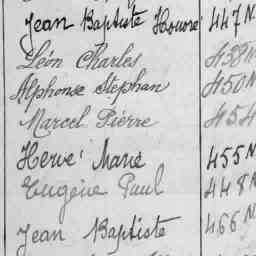 Jean Baptiste Honoré 447 N
Léon Charles 438 N
Alphonse Stephan 450 N
Marcel Pierre 454
Hervé Marie 455 N
Eugène Paul 448 N
Jean Baptiste 466 N